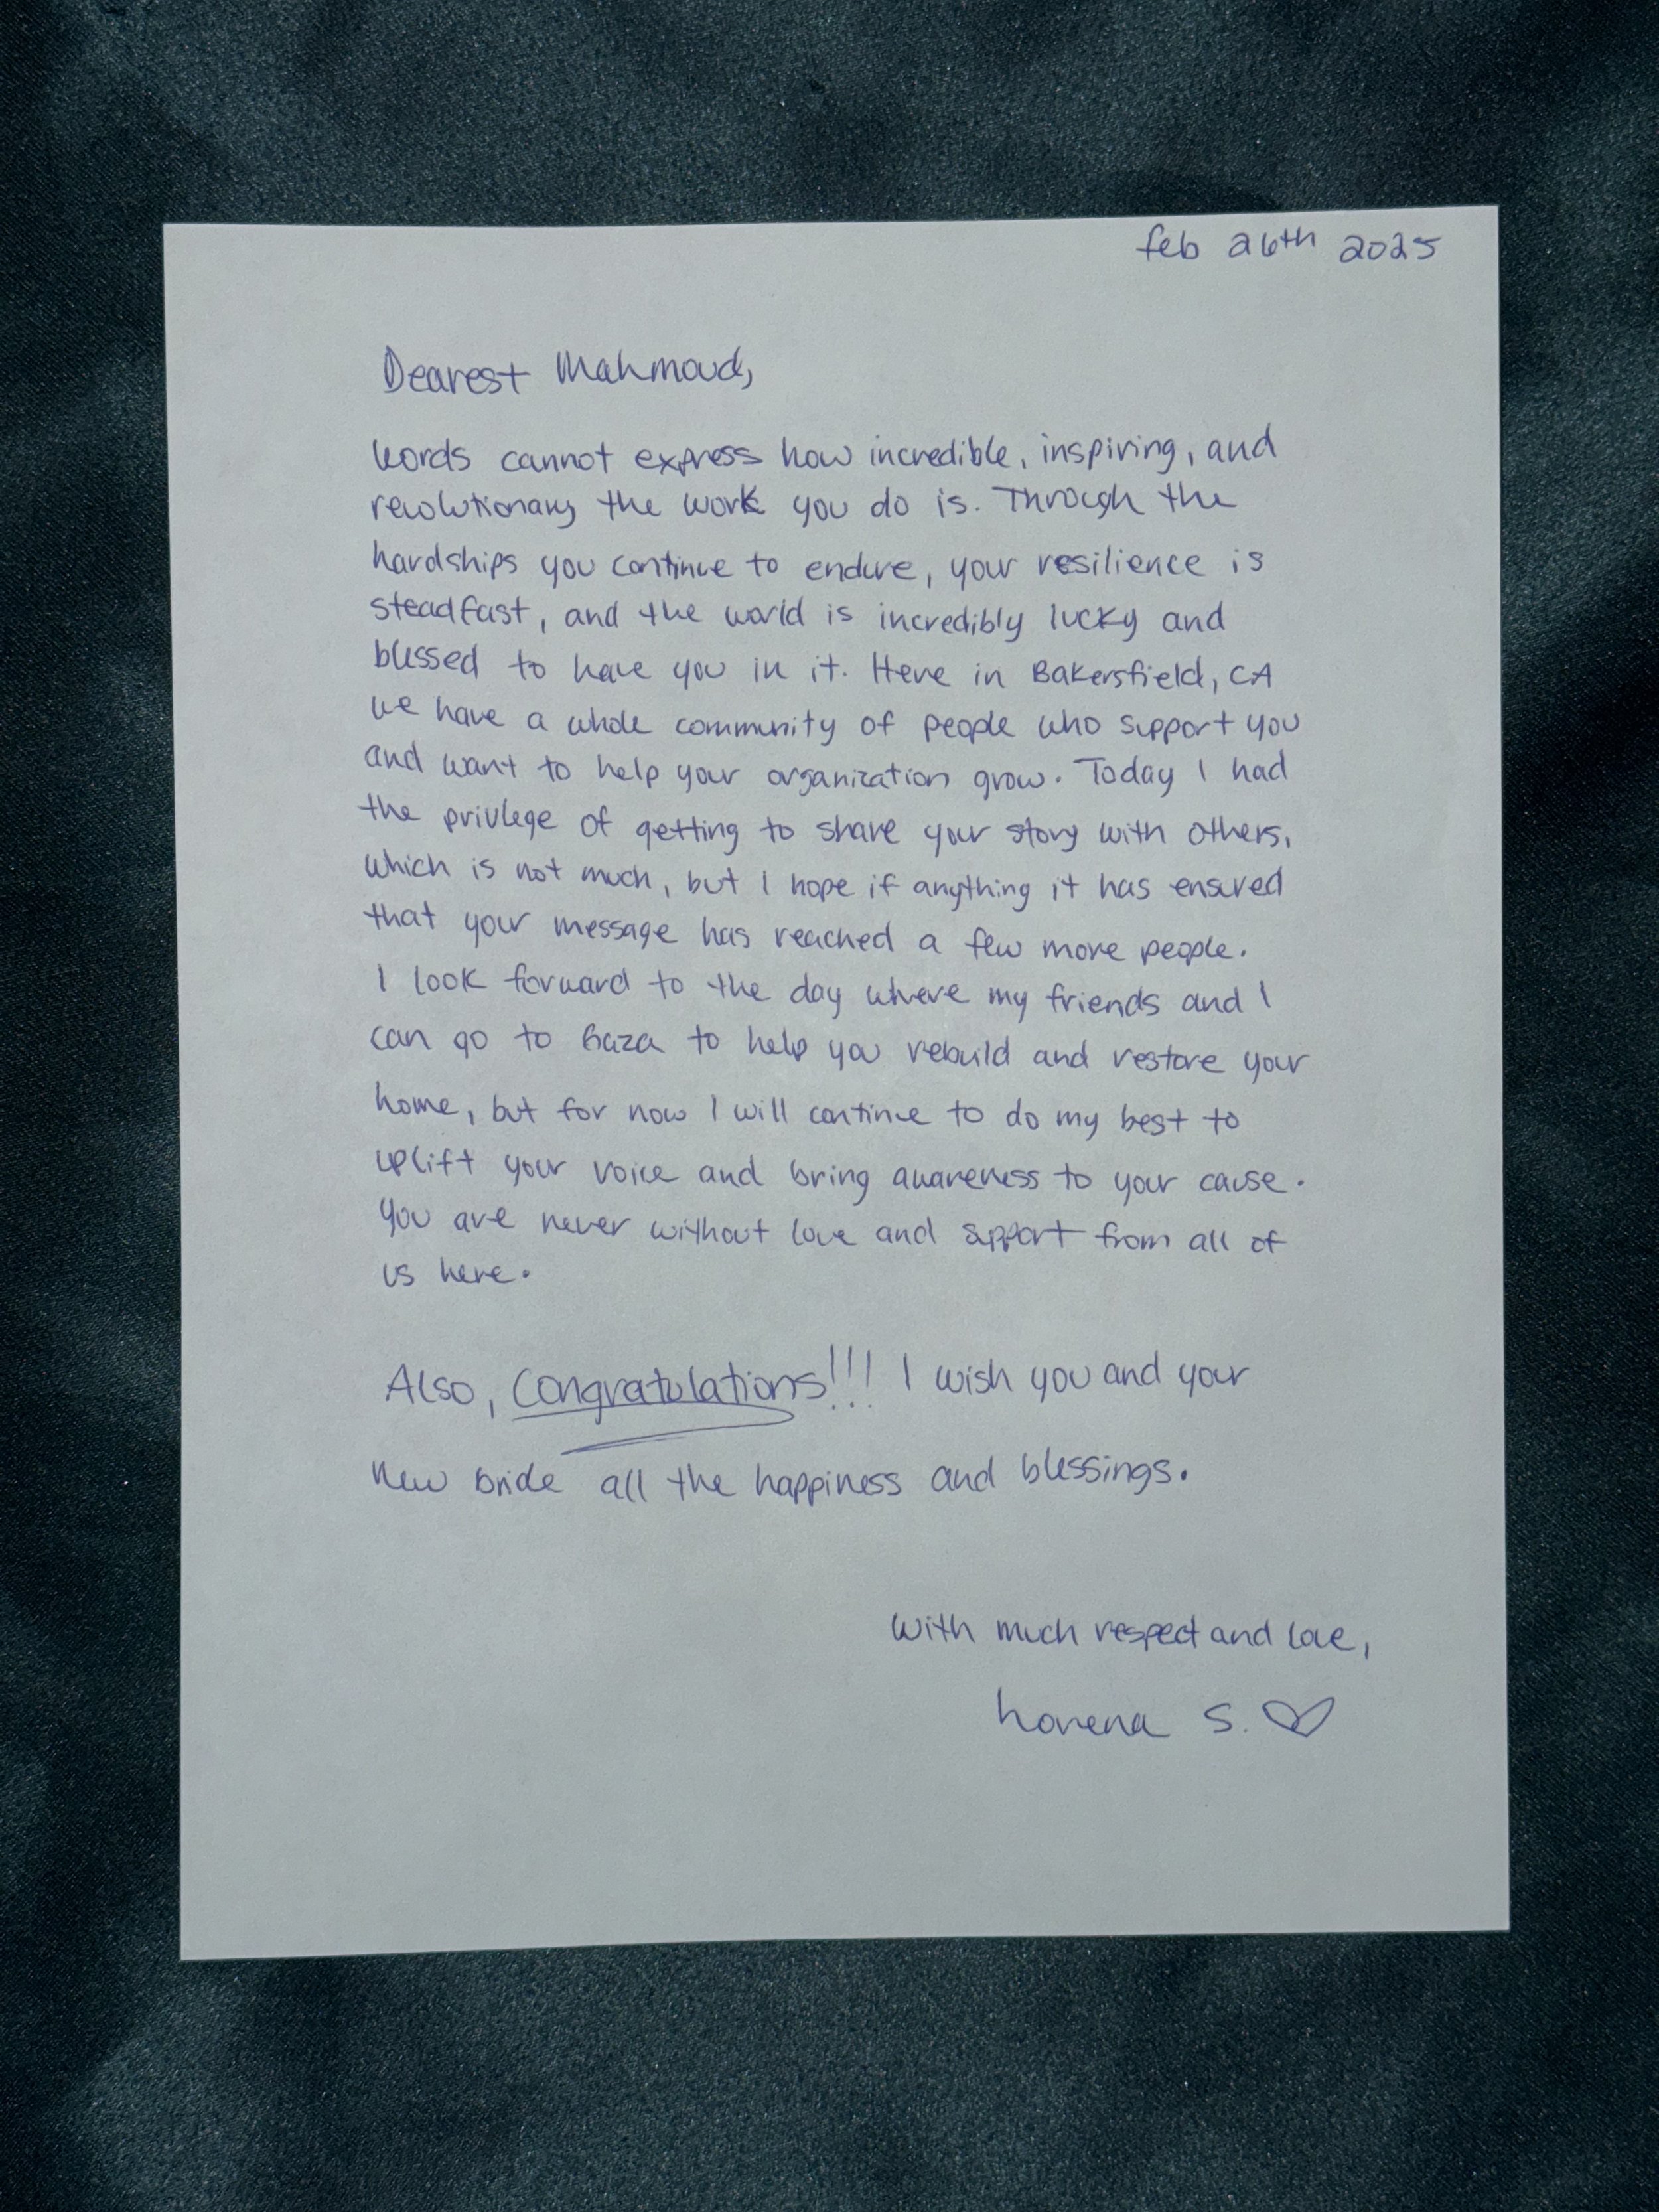 feb 26th 2025
Dearest Mahmoud,
Words cannot express how incredible, inspiring, and
revolutionary the work you do is. Through the
hardships you continue to endure, your resilience is
steadfast, and the world is incredibly lucky and
blessed to have you in it. Here in Bakersfield, CA
we have a whole community of people who support you
and want to help your organization grow. Today I had
the privlege of getting to share your story with others,
which is not much, but I hope if anything it has ensured
that your message has reached a few more people.
I look forward to the day where my friends and I
can go to Gaza to help you rebuild and restore your
home, but for now I will continue to do my best to
uplift your voice and bring awareness to your cause.
You are never without love and support from all of
us here.
Also, Congratulations!!! I wish you and your
new bride all the happiness and blessings.
With much respect and love,
Lorena S. ♡